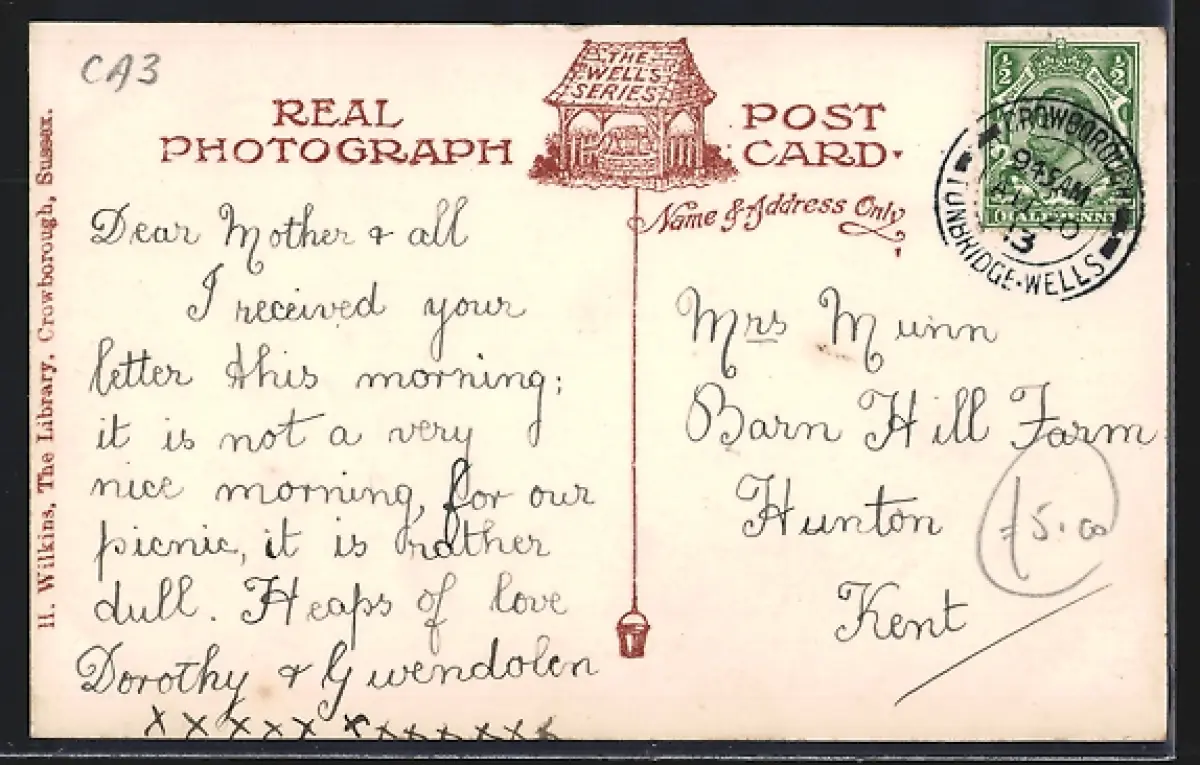 CA3
REAL
PHOTOGRAPH
THE
WELLS
SERIES
POST
CARD.
Name & Address Only
½ ½
HALFPENNY
CROWBOROUGH
9 45 AM
13
TUNBRIDGE-WELLS
H. Wilkins, The Library, Crowborough, Sussex.
Dear Mother & all
I received your
letter this morning;
it is not a very
nice morning, for our
picnic, it is rather
dull. Heaps of love
Dorothy & Gwendolen
x x x x x x x x x x x x
Mrs Munn
Barn Hill Farm
Hunton
Kent
£5.00